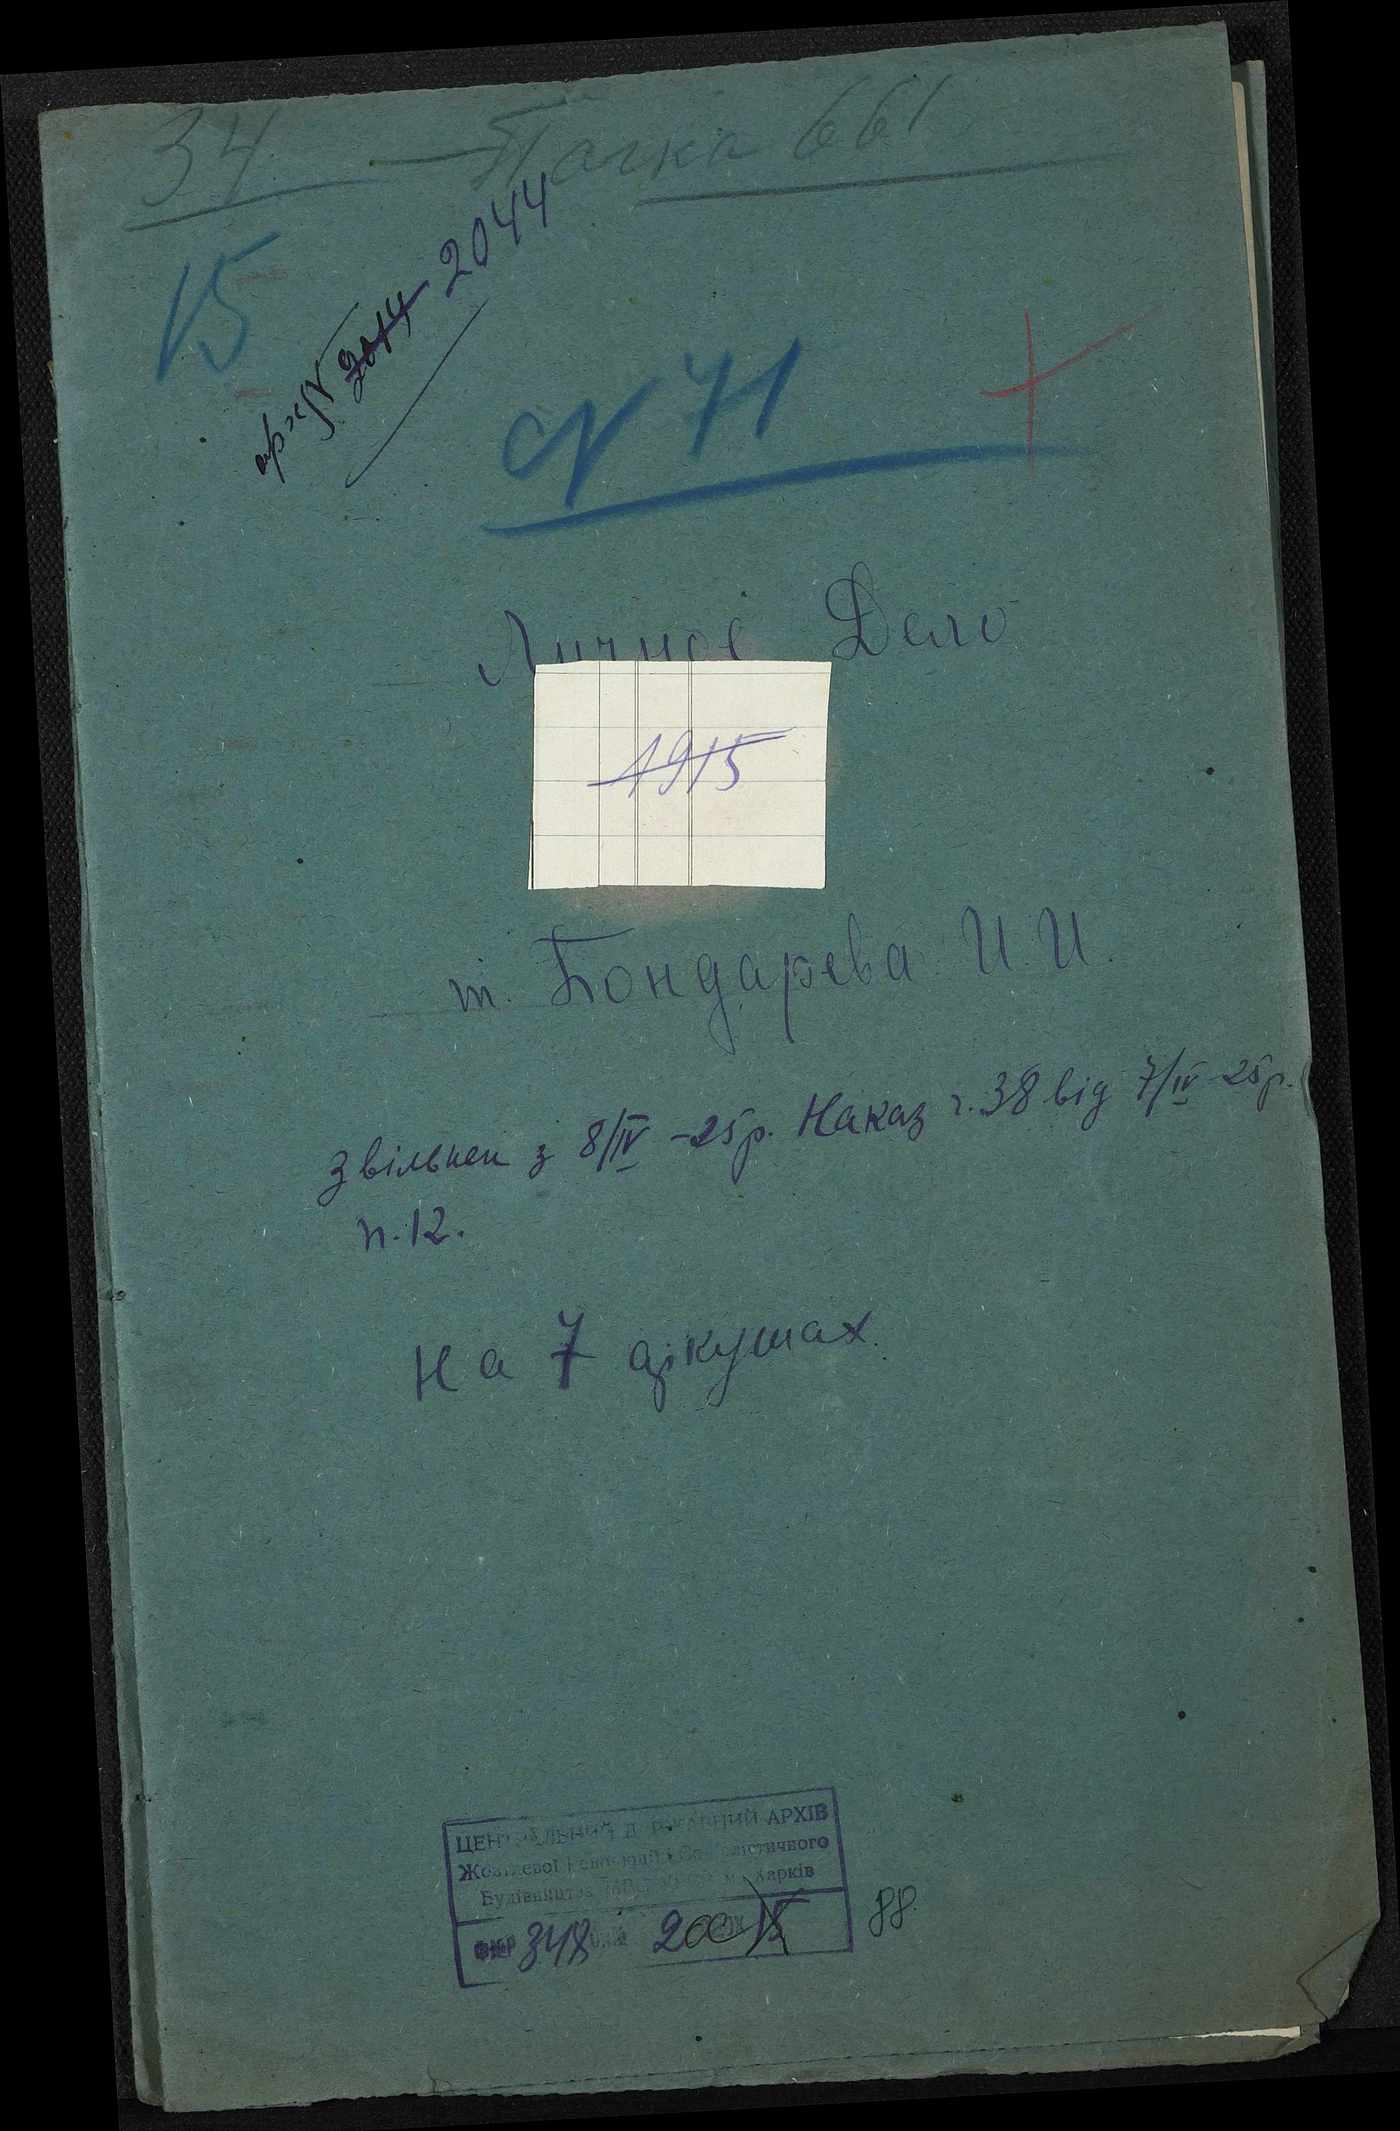 34 — Пачка 661
15
арх № 2014 2044
№ 71
Личное Дело
1915
т. Бондарева И. И.
Звільнен з 8/IV -25р. Наказ ч. 38 від 7/IV 25р.
п. 12.
На 7 аркушах.
ЦЕНТРАЛЬНИЙ ДЕРЖАВНИЙ АРХІВ
Жовтневої революції і Соціалістичного
Будівництва УРСР м. Харків
348 200 15 88.